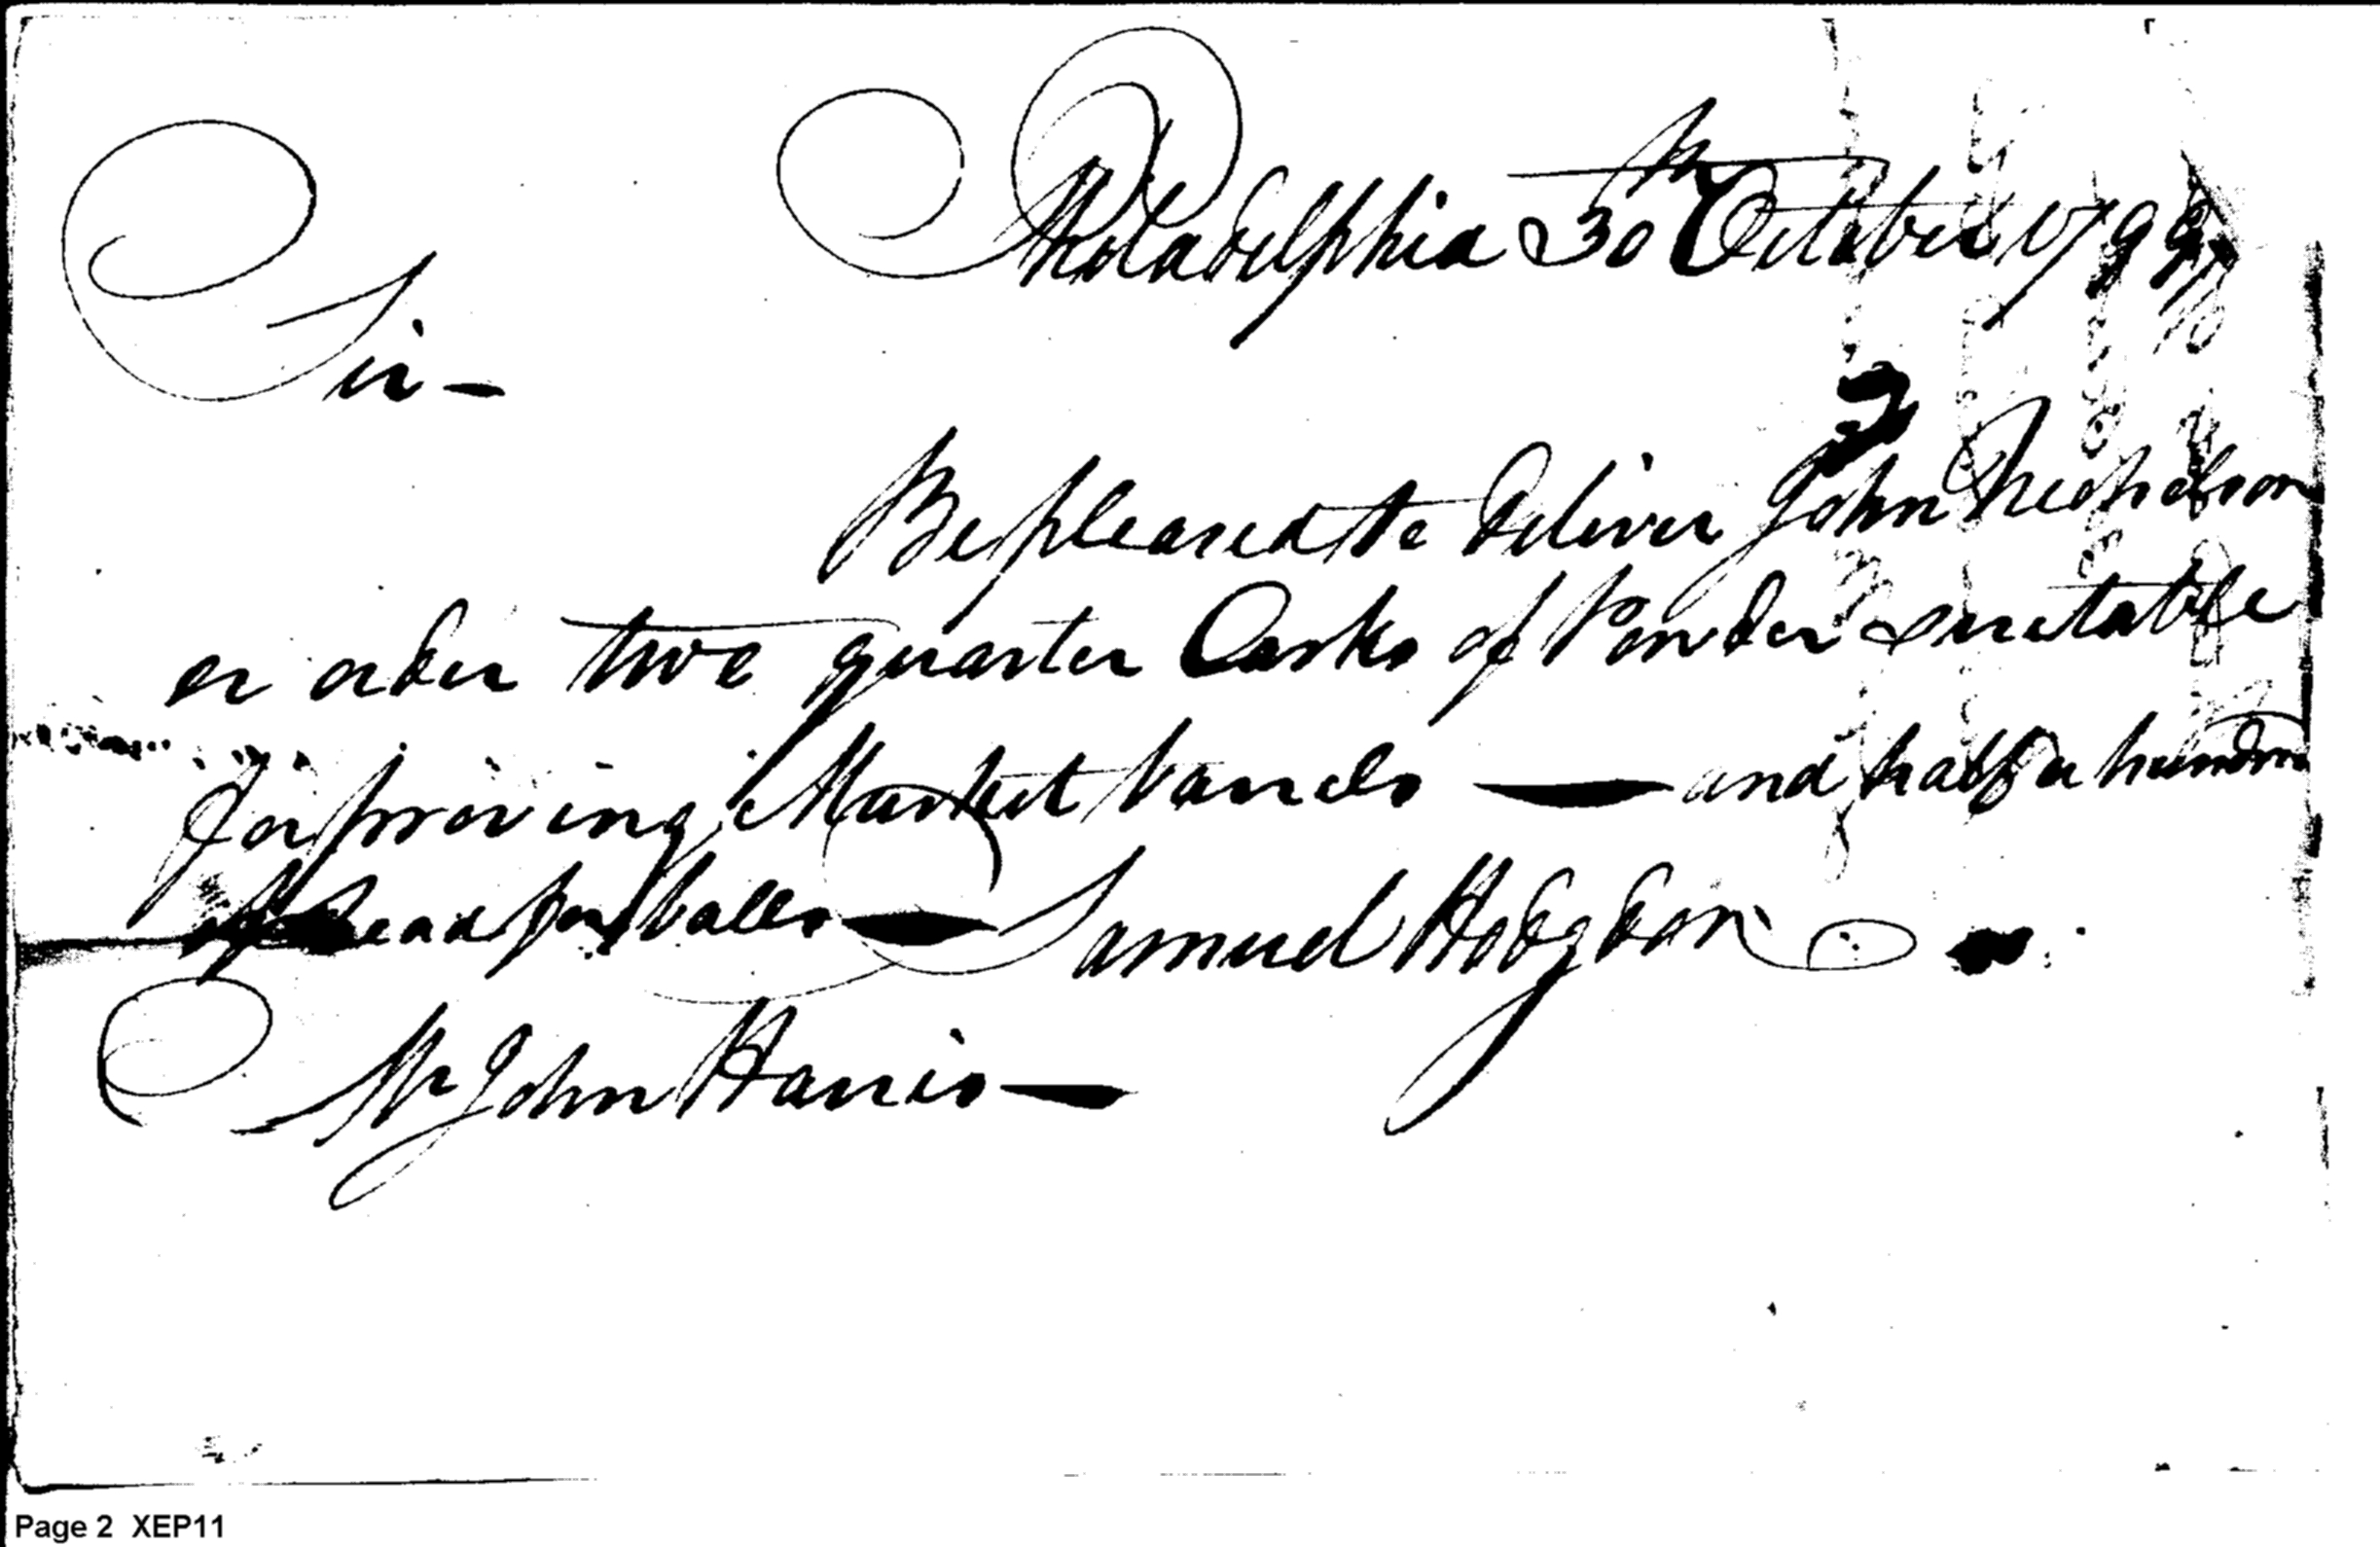 Philadelphia 30th October 179
Sir -
Be pleased to deliver John Nicholson
or order two quarter Casks of Powder suitable
for proving Musket barrels — and half a hundred
of Lead for balls — Samuel Hodgdon
Mr John Harris —
Page 2 XEP11